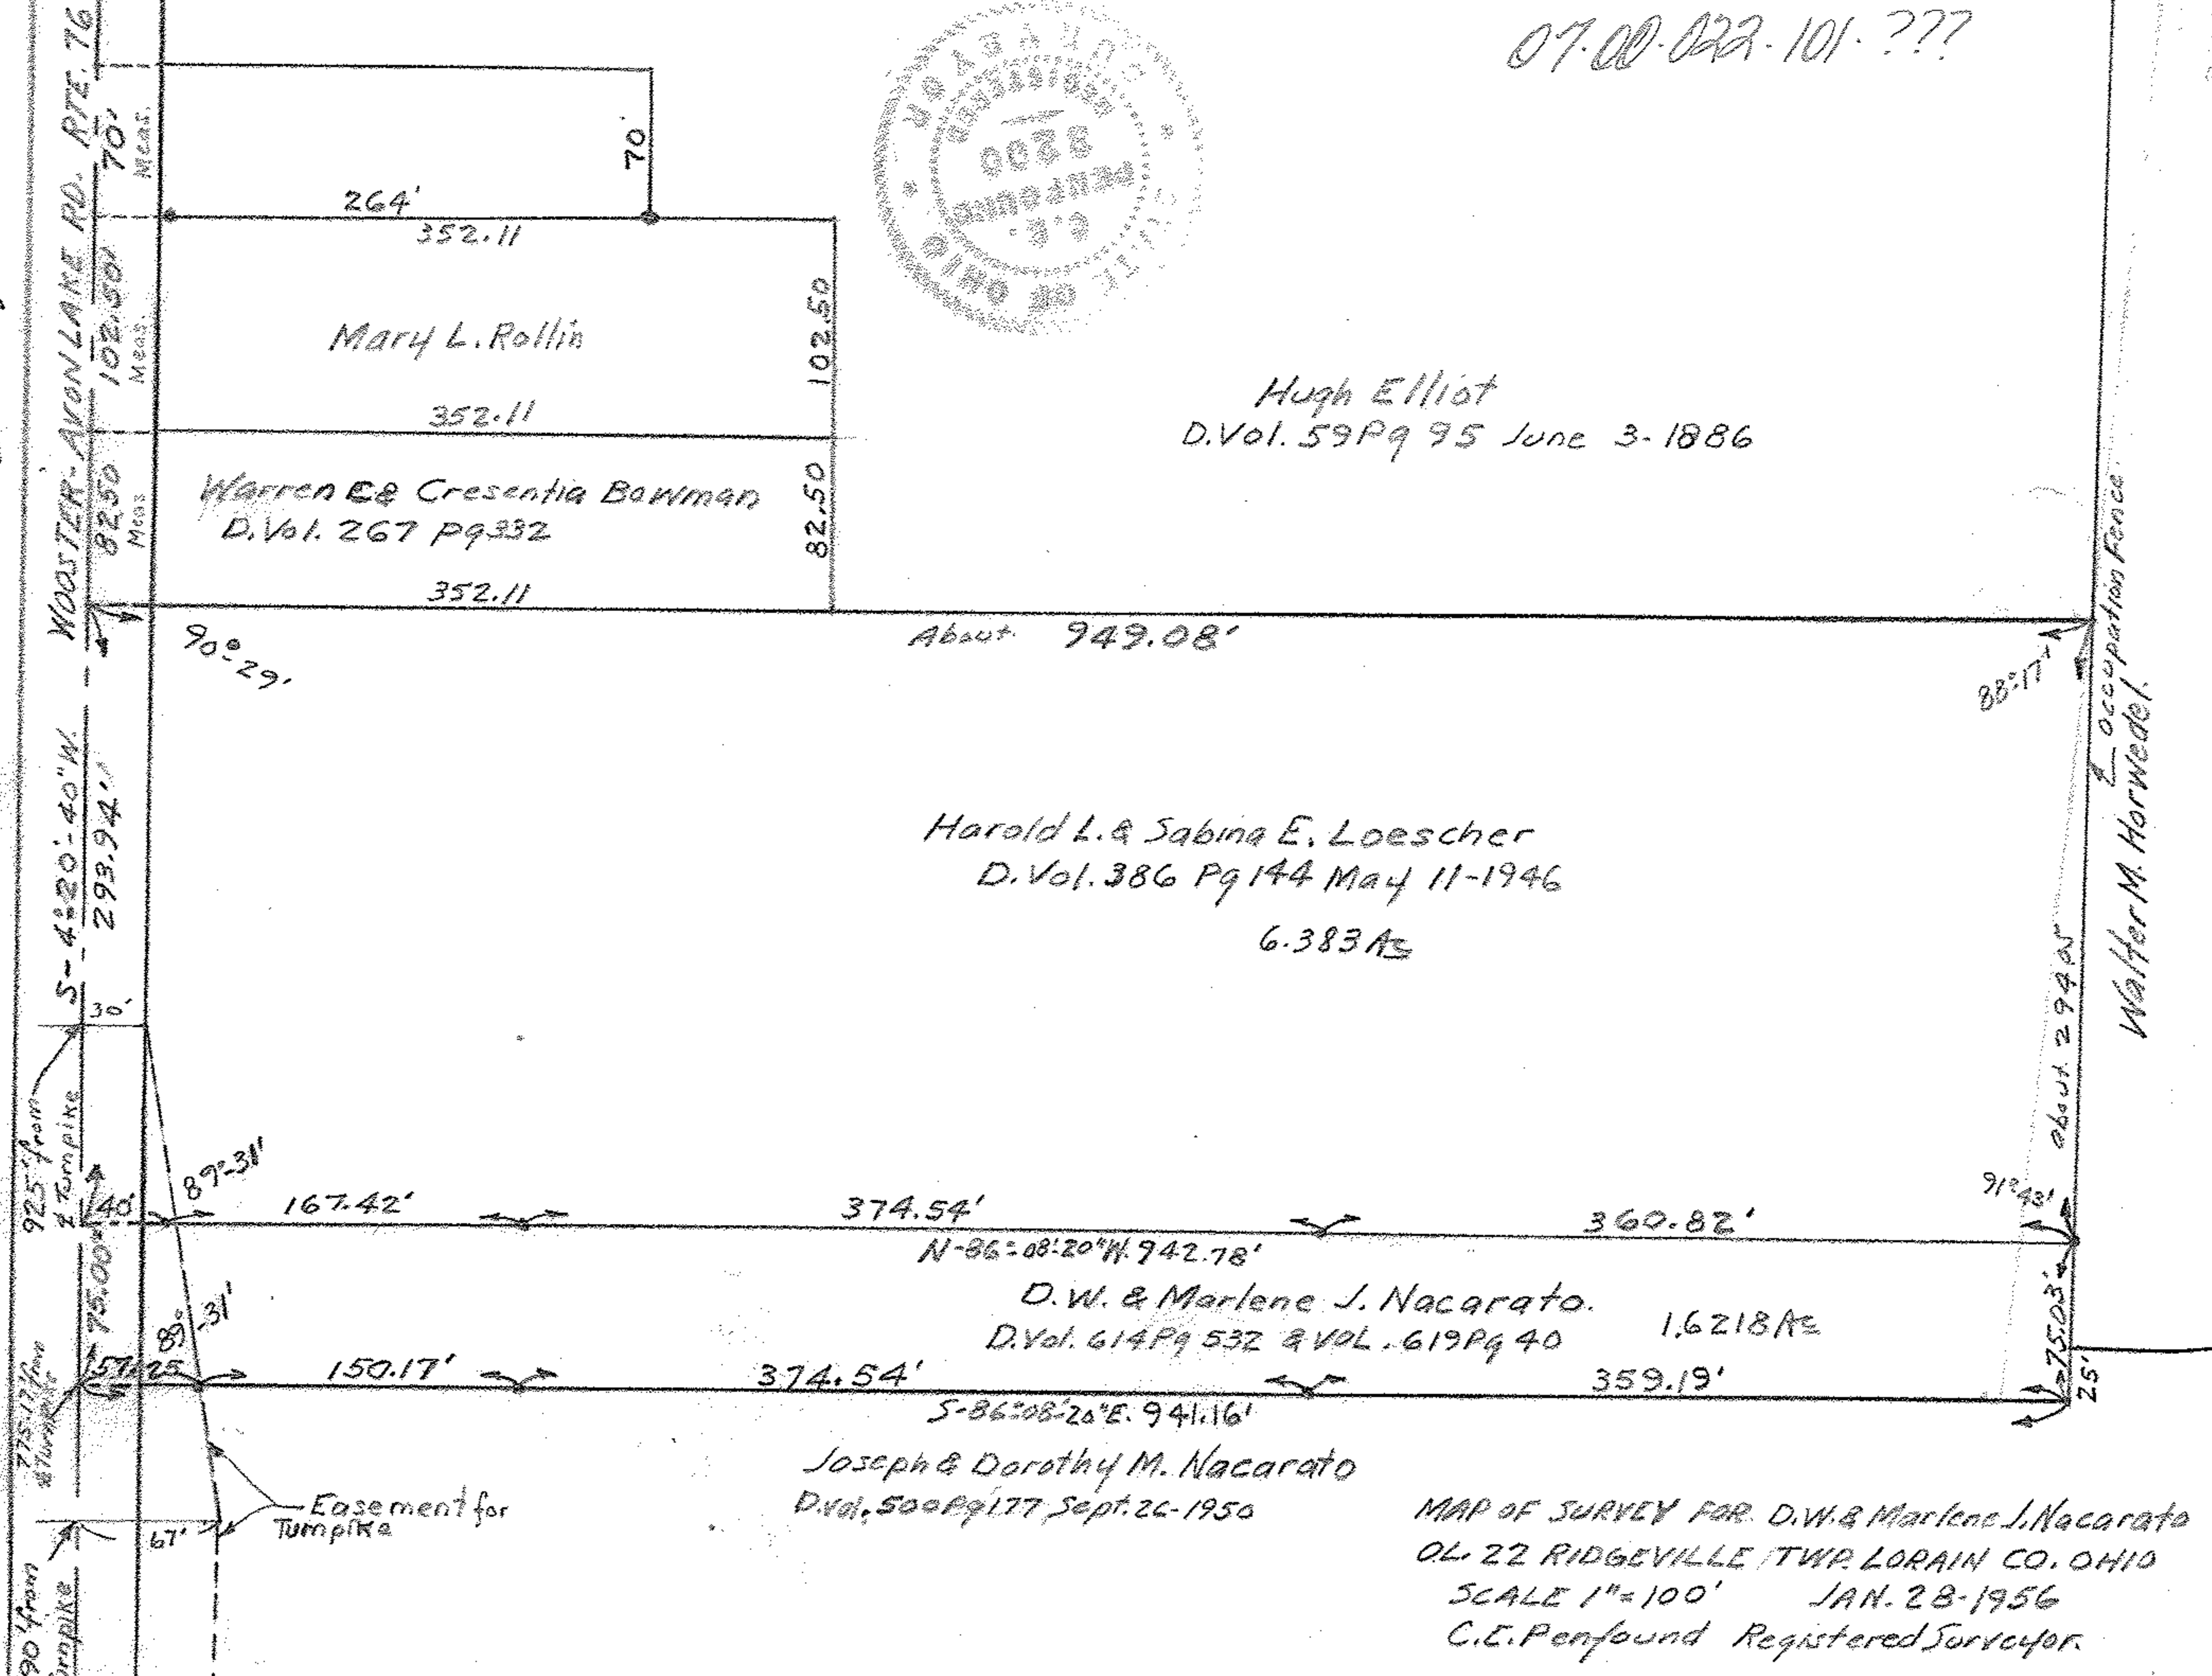 07-00-022-101-???
WOOSTER-AVON LAKE RD. RTE. 76
70'
Meas.
70
264'
352.11
102.50'
Meas.
Mary L. Rollin
102.50
352.11
82.50
Meas
Warren & Cresentia Bowman
D.Vol. 267 Pg 332
82.50
352.11
SURVEYOR
REGISTERED
3200
PENFOUND
C.E.
STATE OF OHIO
Hugh Elliot
D.Vol. 59 Pg 95 June 3-1886
90°-29'
About 949.08'
88°-17'
Occupation Fence
Walter M. Horwedel.
S-4°-20'-40"W.
293.94'
Harold L. & Sabina E. Loescher
D.Vol. 386 Pg 144 May 11-1946
6.383 Ac
about 294.05
30'
925' from
℄ Turnpike
89°-31'
40'
167.42'
374.54'
360.82'
91°-43'
N-86°-08'-20"W. 942.78'
75.00'
D.W. & Marlene J. Nacarato.
D.Vol. 614 Pg 532 & VOL. 619 Pg 40
1.6218 Ac
75.03'
25'
89°-31'
57.25
150.17'
374.54'
359.19'
S-86°-08'-20"E. 941.16'
775.17' from
℄ Turnpike
Joseph & Dorothy M. Nacarato
D.Vol. 500 Pg 177 Sept. 26-1950
Easement for
Turnpike
67'
90' from
urnpike
MAP OF SURVEY FOR D.W. & Marlene J. Nacarato
O.L. 22 RIDGEVILLE TWP. LORAIN CO. OHIO
SCALE 1"=100' JAN. 28-1956
C.E. Penfound Registered Surveyor.